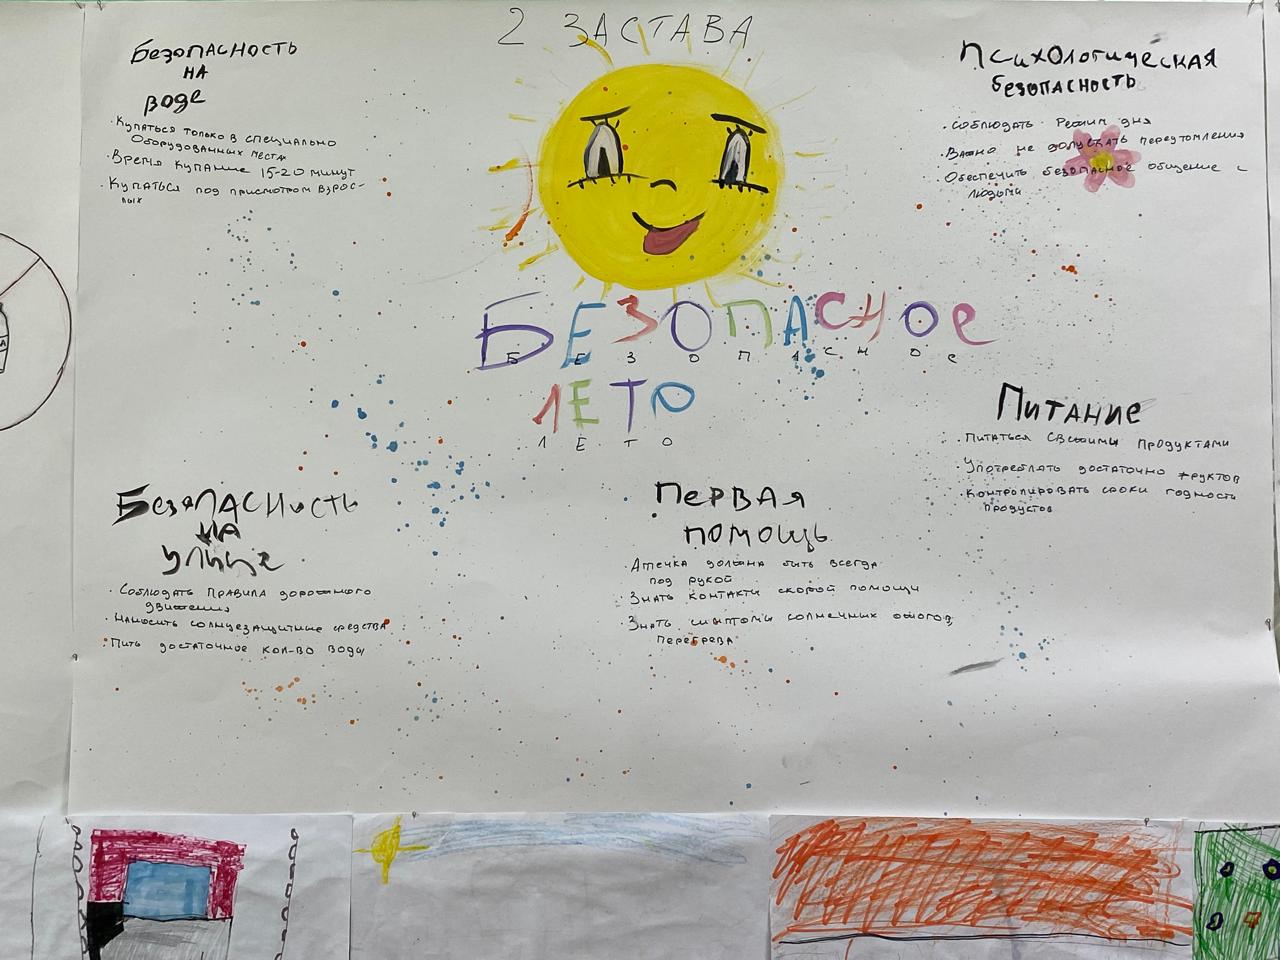 2 ЗАСТАВА
Безопасность
на
воде
· Купаться только в специально
оборудованных местах
· Время купание 15-20 минут
· Купаться под присмотром взрос-
лых
Психологическая
безопасность
· Соблюдать режим дня
· Важно не допускать переутомления
· Обеспечить безопасное общение с
людьми
БЕЗОПАСНОЕ
БЕЗОПАСНОЕ
ЛЕТО
ЛЕТО
Питание
· Питаться свежими продуктами
· Употреблять достаточно фруктов
· Контролировать сроки годность
продуктов
Безопасность
на
улице
· Соблюдать правила дорожного
движения
· Наносить солнцезащитные средства
· Пить достаточное кол-во воды
Первая
помощь
· Аптечка должна быть всегда
под рукой
· Знать контакти скорой помощи
· Знать симптомы солнечных ожогов,
перегрева